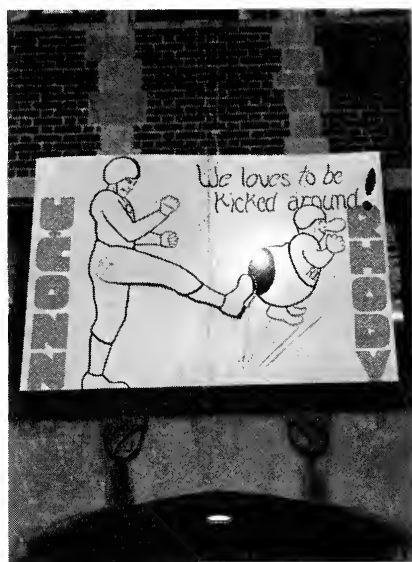 UCONN
We loves to be
Kicked around!
RHODY